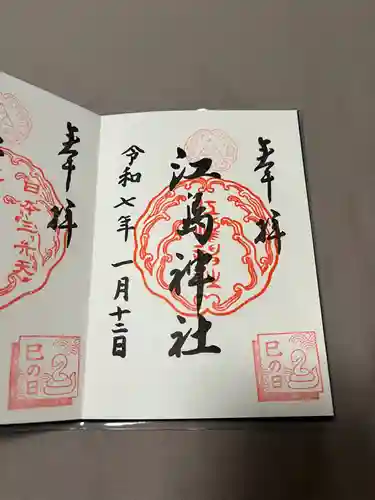 奉拝
江島神社
令和七年 一月十二日
巳の日
奉拝
巳の日